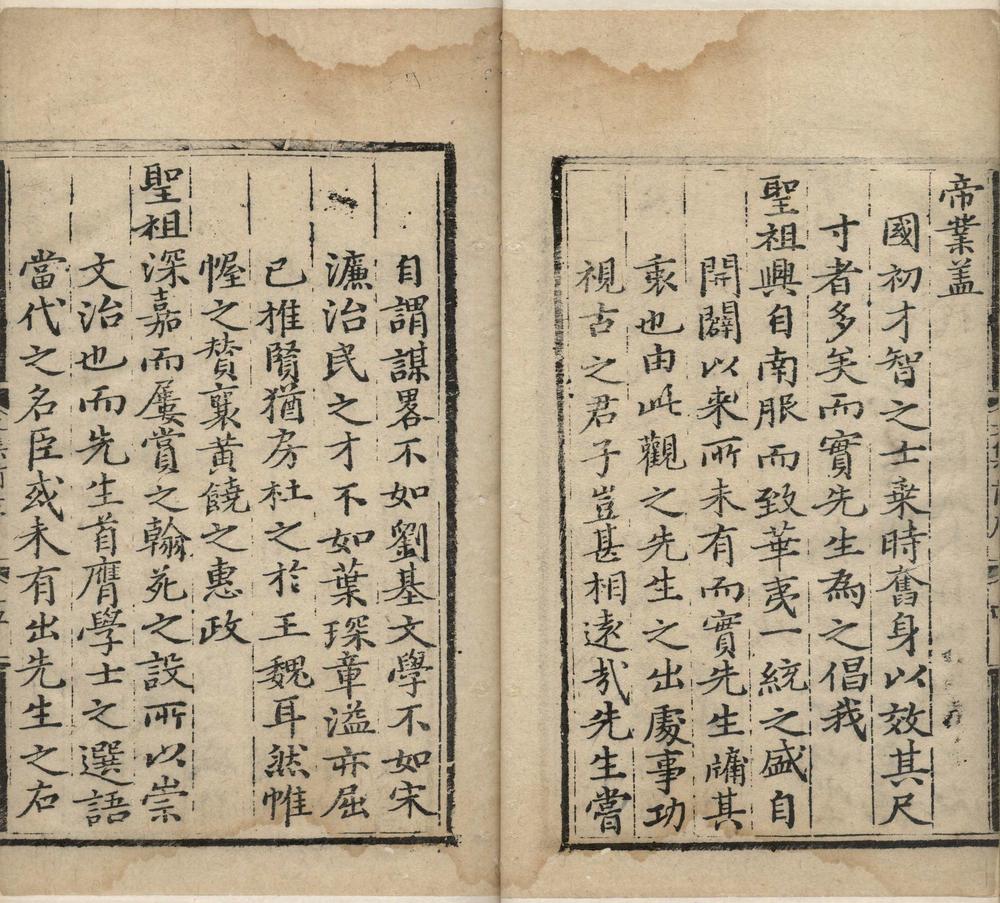 帝業盖
國初才智之士乗時奮身以效其尺
寸者多矣而實先生為之倡我
聖祖興自南服而致華夷一統之盛自
開闢以来所未有而實先生牖其
衷也由此觀之先生之出處事功
視古之君子豈甚相遠㦲先生嘗
自謂謀畧不如劉基文學不如宋
濂治民之才不如葉琛章溢亦屈
已推賢猶房杜之於王魏耳然帷
幄之賛襄黄饒之惠政
聖祖深嘉而屢賞之翰苑之設所以崇
文治也而先生首膺學士之選語
當代之名臣或未有出先生之右